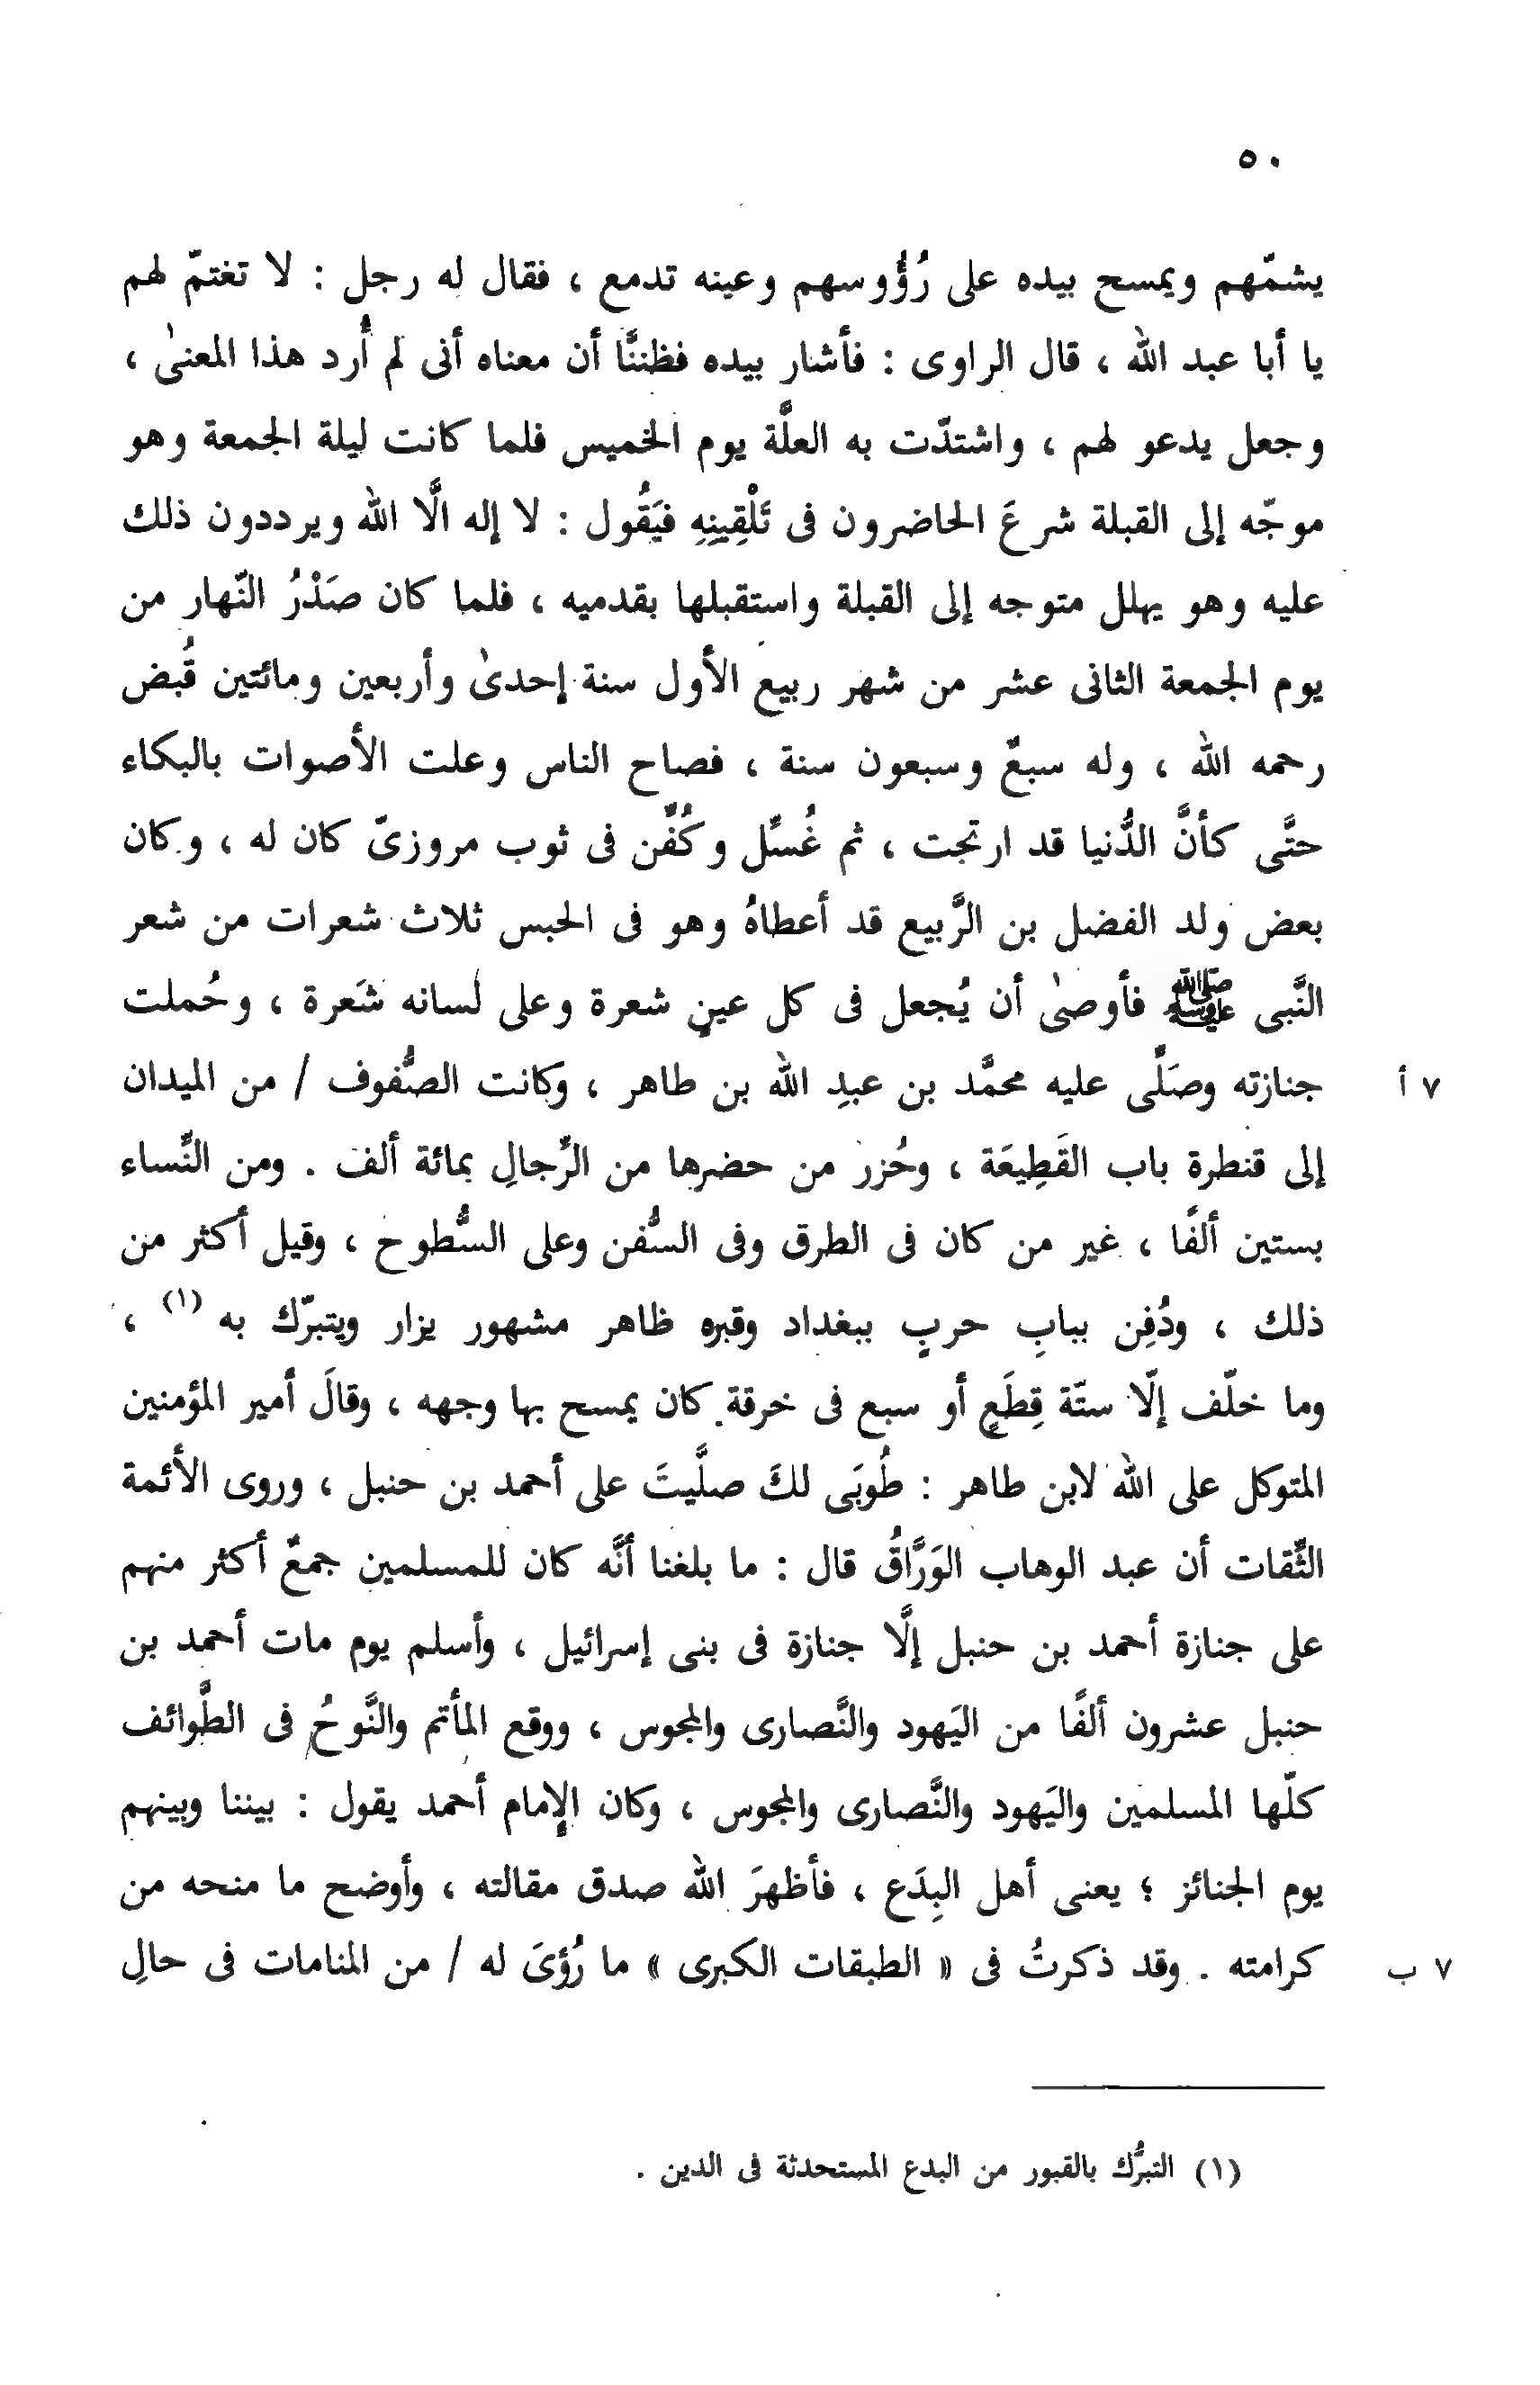 ٥٠
يشمّهم ويمسح بيده على رُؤُوسهم وعينه تدمع ، فقال له رجل : لا تغتمّ لهم
يا أبا عبد الله ، قال الراوى : فأشار بيده فظننَّا أن معناه أنى لم أُرد هذا المعنىٰ ،
وجعل يدعو لهم ، واشتدّت به العلَّة يوم الخميس فلما كانت ليلة الجمعة وهو
موجّه إلى القبلة شرعَ الحاضرون فى تَلْقِينِهِ فيَقُول : لا إله الَّا الله ويرددون ذلك
عليه وهو يهلل متوجه إلى القبلة واستقبلها بقدميه ، فلما كان صَدْرُ النّهار من
يوم الجمعة الثانى عشر من شهر ربيع الأول سنة إحدىٰ وأربعين ومائتين قُبض
رحمه الله ، وله سبعٌ وسبعون سنة ، فصاح الناس وعلت الأصوات بالبكاء
حتَّى كأنَّ الدُّنيا قد ارتجت ، ثم غُسِّل وكُفِّن فى ثوب مروزىّ كان له ، وكان
بعض ولد الفضل بن الرَّبيع قد أعطاهُ وهو فى الحبس ثلاث شعرات من شعر
النَّبى ﷺ فأوصىٰ أن يُجعل فى كل عينٍ شعرة وعلى لسانه شَعرة ، وحُملت
جنازته وصَلَّى عليه محمَّد بن عبدِ الله بن طاهر ، وكانت الصُّفوف / من الميدان ٧ أ
إلى قنطرة باب القَطِيعَة ، وحُزر من حضرها من الرِّجالِ بمائة ألف . ومن النِّساء
بستين ألفًا ، غير من كان فى الطرق وفى السُّفن وعلى السُّطوح ، وقيل أكثر من
ذلك ، ودُفِن ببابِ حربٍ ببغداد وقبره ظاهر مشهور يزار ويتبرّك به (١) ،
وما خلّف إلّا ستّة قِطَعٍ أو سبع فى خرقة كان يمسح بها وجهه ، وقالَ أمير المؤمنين
المتوكل على الله لابن طاهر : طُوبَى لكَ صلَّيتَ على أحمد بن حنبل ، وروى الأئمة
الثِّقات أن عبد الوهاب الوَرَّاقُ قال : ما بلغنا أنَّه كان للمسلمين جمعٌ أكثر منهم
على جنازة أحمد بن حنبل إلَّا جنازة فى بنى إسرائيل ، وأسلم يوم مات أحمد بن
حنبل عشرون ألفًا من اليَهود والنَّصارى والمجوس ، ووقع المأتم والنَّوحُ فى الطَّوائف
كلّها المسلمين واليَهود والنَّصارى والمجوس ، وكان الإِمام أحمد يقول : بيننا وبينهم
يوم الجنائز ؛ يعنى أهل البِدَع ، فأظهرَ الله صدق مقالته ، وأوضح ما منحه من
كرامته . وقد ذكرتُ فى « الطبقات الكبرى » ما رُؤىَ له / من المنامات فى حالِ ٧ ب
(١) التبرُّك بالقبور من البدع المستحدثة فى الدين .